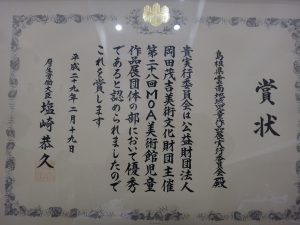 賞状
島根県雲南地域児童作品展実行委員会殿
貴実行委員会は公益財団法人
岡田茂吉美術文化財団主催
第二十八回MOA美術館児童
作品展団体の部において優秀
であると認められましたので
これを賞します
平成二十九年二月十九日
厚生労働大臣 塩崎恭久